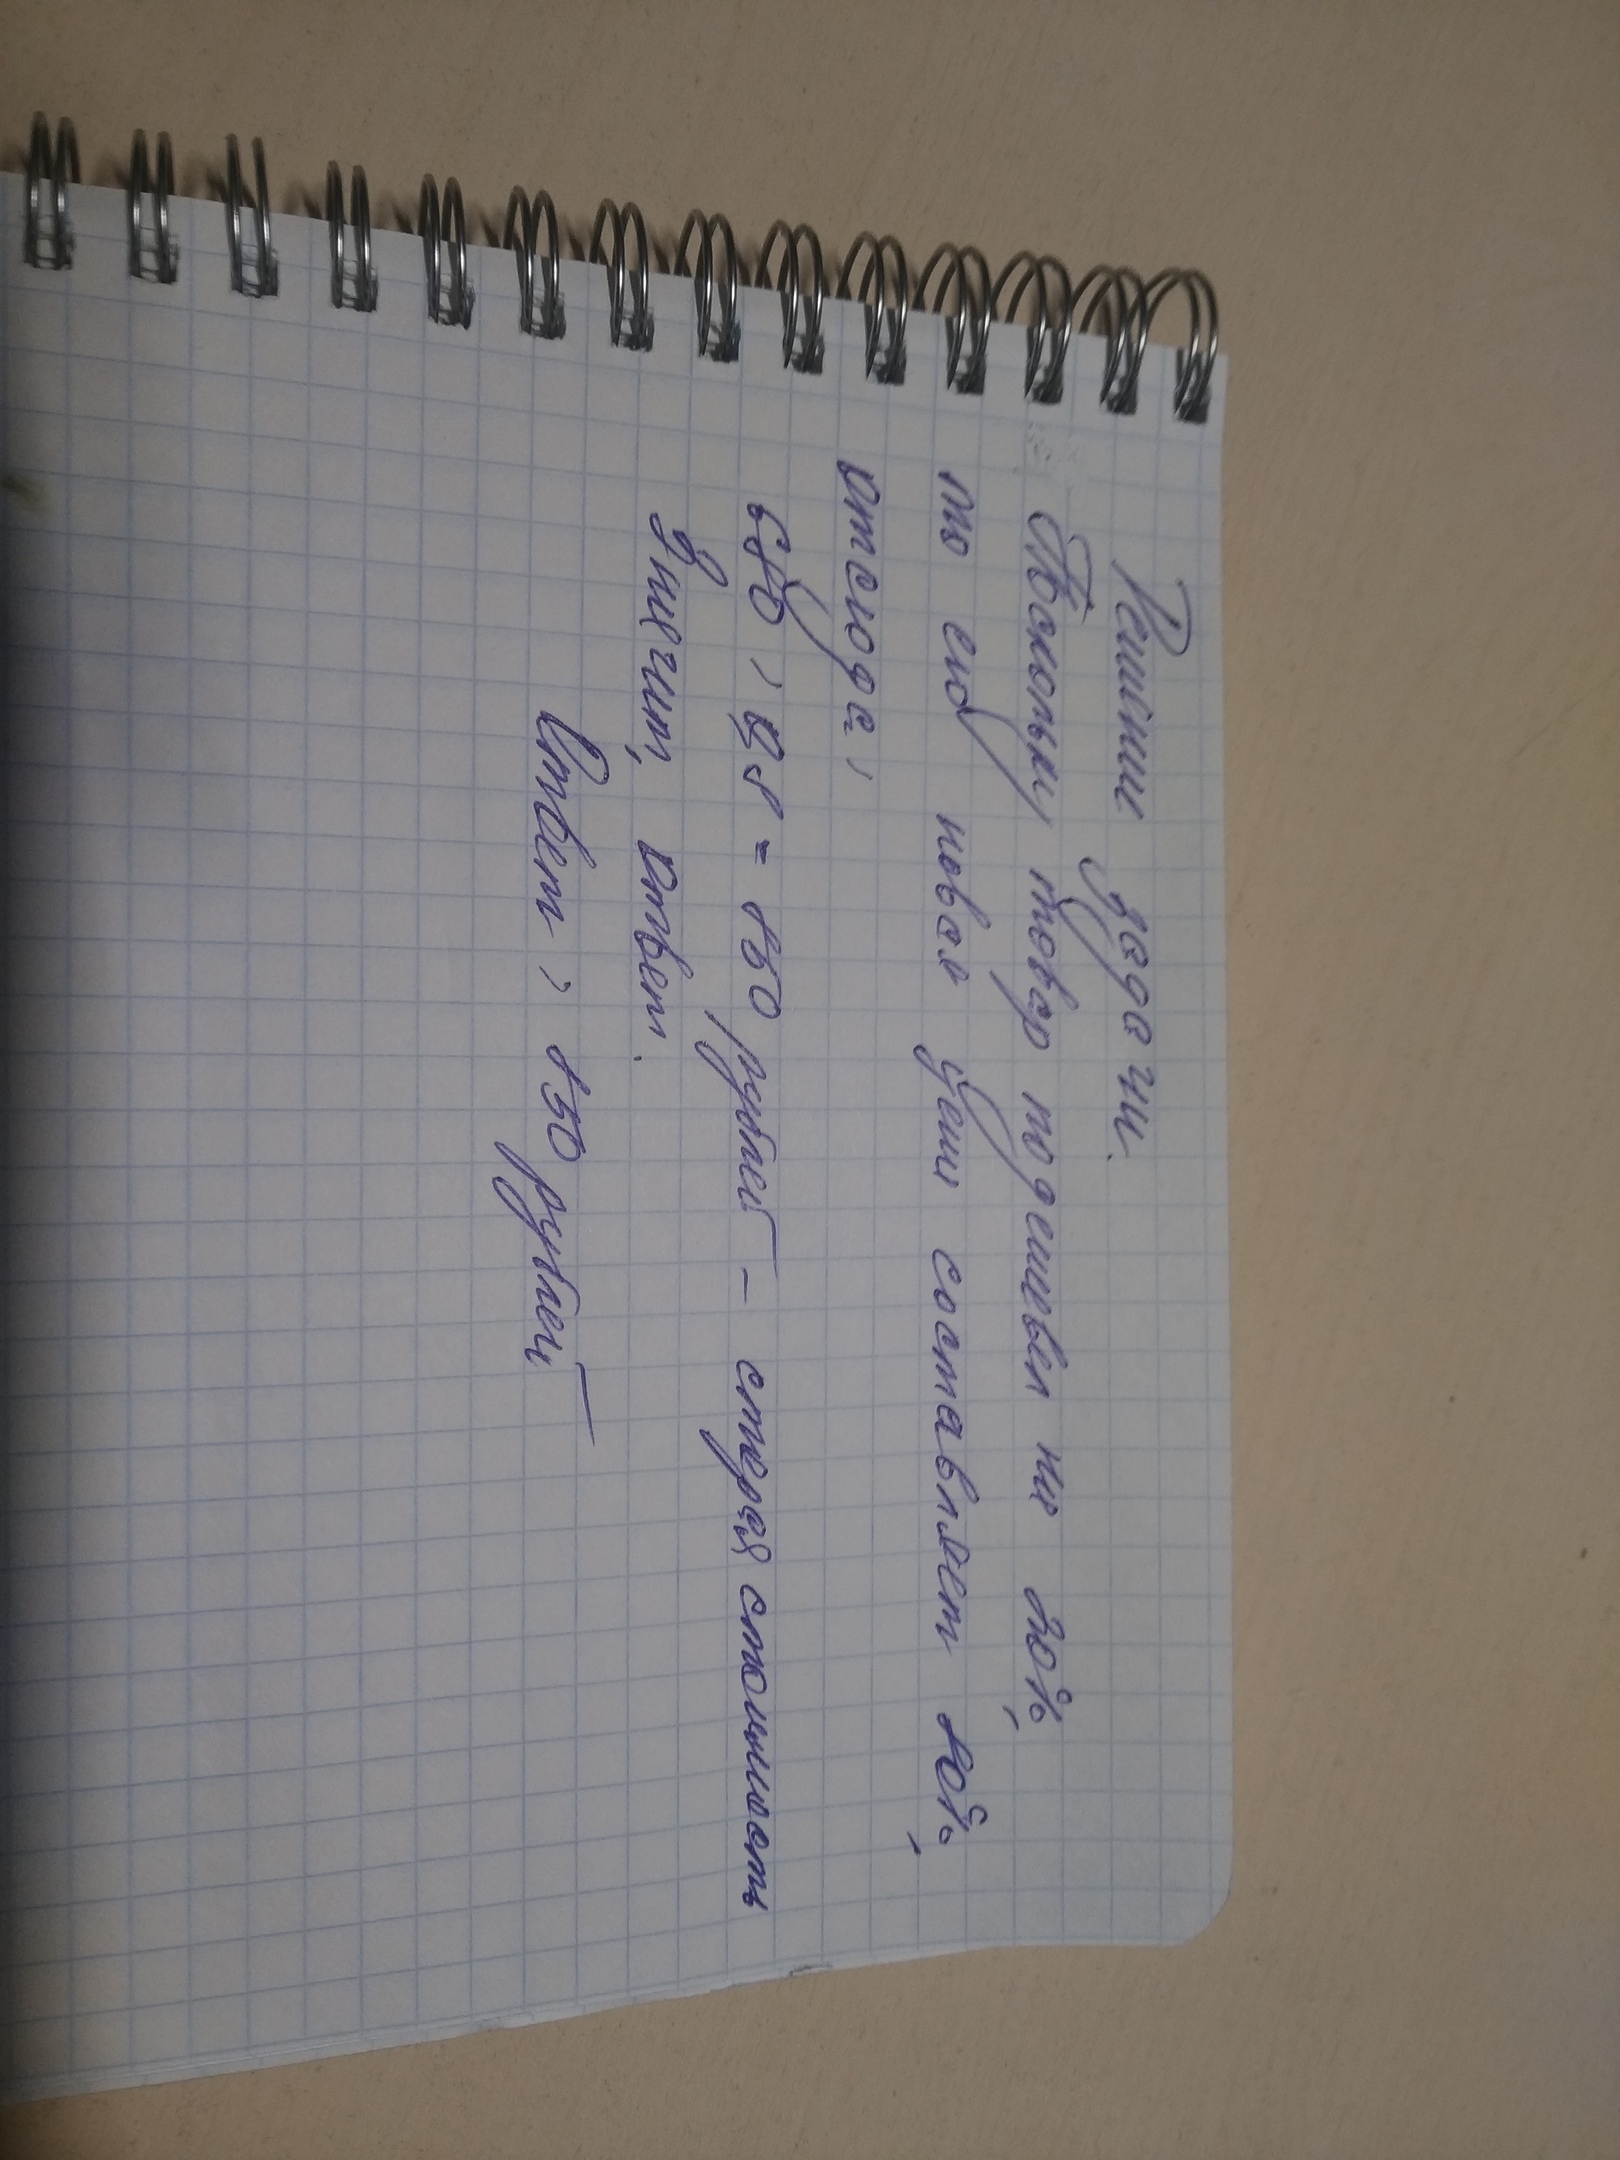 Решение задачи.
Поскольку товар подешевел на 20%,
то его новая цена составляет 80%,
отсюда:
680 : 0,8 = 850 рублей - старая стоимость
Значит, ответ:
Ответ: 850 рублей